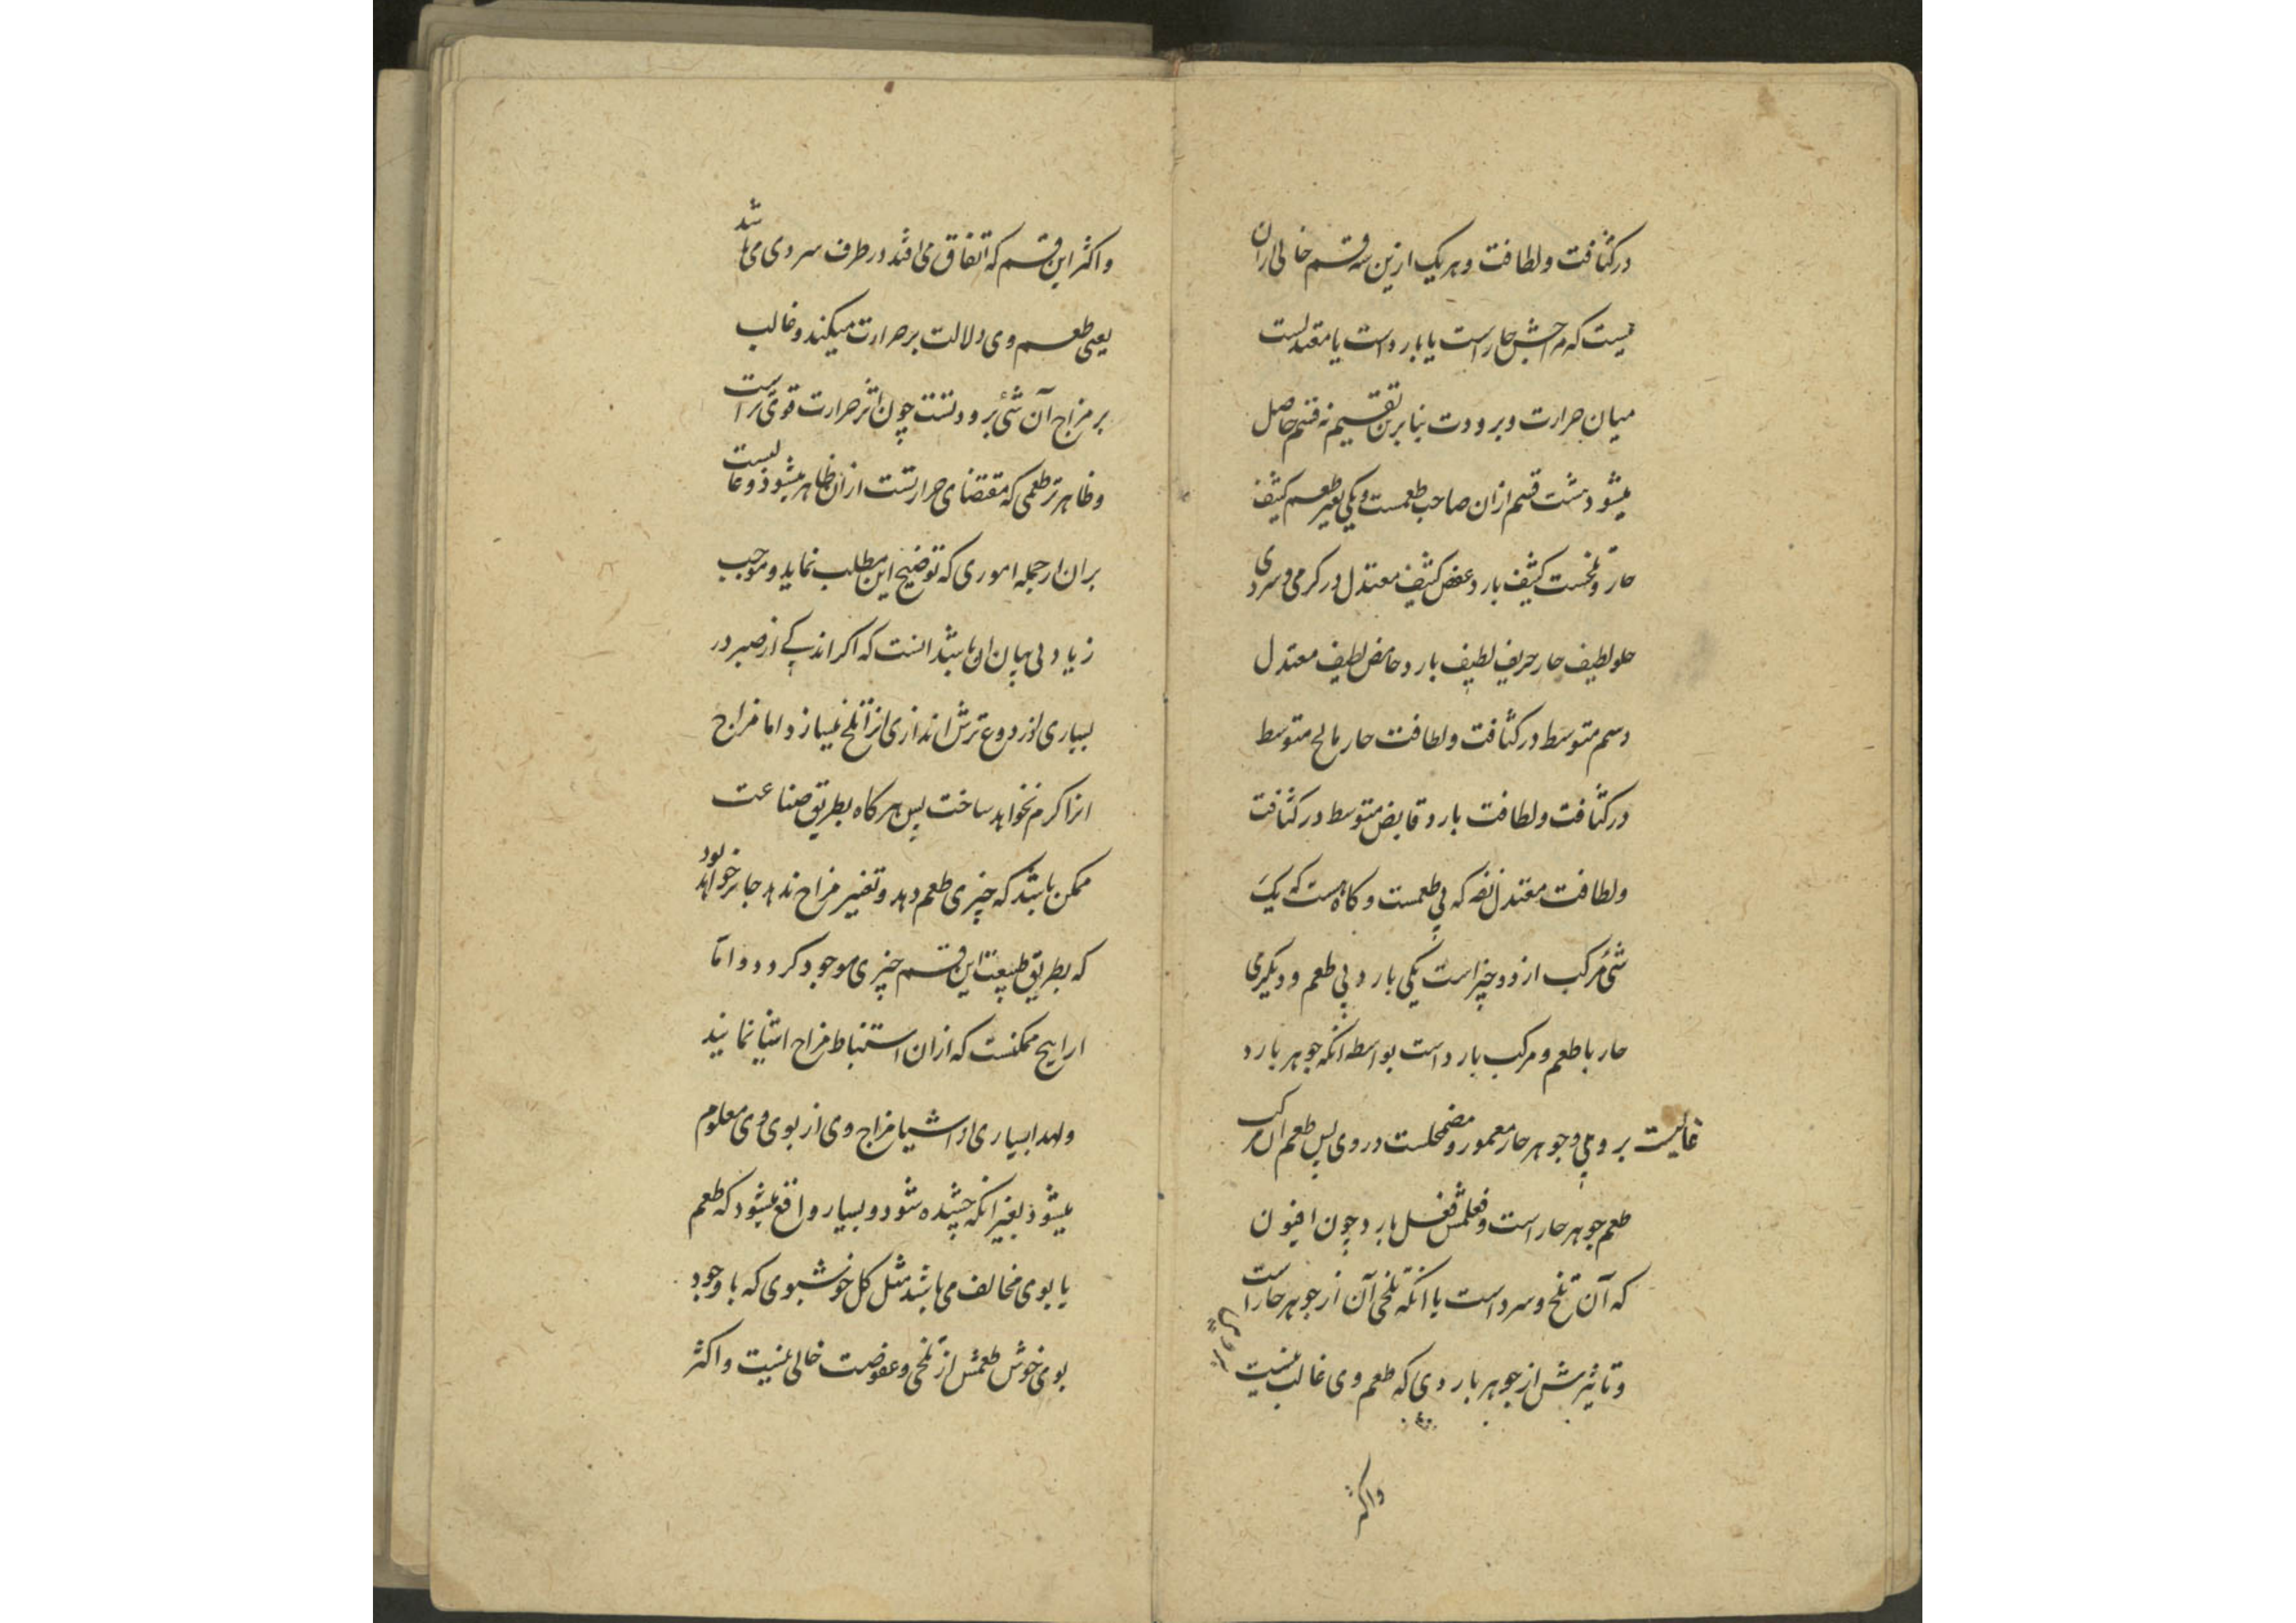 در کثافت و لطافت و هر یک ازین سه قسم خالی ازان
نیست که مزاجش حار است یا بارد است یا معتدلست
میان حرارت و برودت بنا برین تقسیم نه قسم حاصل
میشود هشت قسم ازان صاحب طعمست و یکی بغیر طعم کثیف
حار و تلخست کثیف بارد عفص کثیف معتدل در کرمی و سردی
حلو لطیف حار حریف لطیف بارد حامض لطیف معتدل
دسم متوسط در کثافت و لطافت حار مالح متوسط
در کثافت و لطافت بارد قابض متوسط در کثافت
و لطافت معتدل تفه که بی طعمست و کاه هست که یک
شیٔ مرکب از دو چیز است یکی بارد بی طعم و دیکری
حار با طعم و مرکب بارد است بواسطه انکه جوهر بارد
غالبست بر وی و جوهر حار مغمور و مضمحلست در وی پس طعم ان مرکب
طعم جوهر حار است و فعلش فعل بارد چون افیون
که آن تلخ و سرد است با انکه تلخی آن از جوهر حار است
و تاثیرش از جوهر باردی که طعم وی غالب نیست
واکثر
واکثر این قسم که اتفاق می افتد در طرف سردی می باشد
یعنی طعم وی دلالت بر حرارت میکند و غالب
بر مزاج آن شیٔ برودتست چون اثر حرارت قوی تر است
و ظاهر تر طعمی که مقتضای حرارتست ازان ظاهر میشود و غالبست
بران از جمله اموری که توضیح این مطلب نماید و موجب
زیادتی بیان او باشد انست که اکر اندکی از صبر در
بسیاری از دوغ ترش اندازی انرا تلخ میسازد اما مزاج
انرا کرم نخواهد ساخت پس هر کاه بطریق صناعت
ممکن باشد که چیزی طعم دهد و تغییر مزاج ندهد جایز خواهد بود
که بطریق طبیعت این قسم چیزی موجود کردد و امّا
اراییح ممکنست که ازان استنباط مزاج اشیا نمایند
ولهذا بسیاری از اشیا مزاج وی از بوی وی معلوم
میشود بغیر انکه چشیده شود و بسیار واقع میشود که طعم
با بوی مخالف می باشد مثل کل خوشبوی که با وجود
بوی خوش طعمش از تلخی و عفوصت خالی نیست واکثر